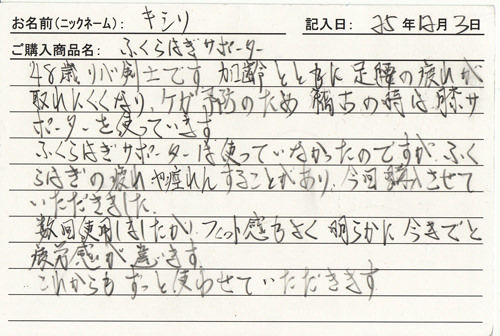 お名前(ニックネーム): キシリ 記入日: 25年12月3日
ご購入商品名: ふくらはぎサポーター
48歳 剣士です 加齢とともに足腰の疲れが
取れにくくなり、ケガ予防のため 稽古の時は膝サ
ポーターを使っています
ふくらはぎサポーターは使っていなかったのですが、ふく
らはぎの疲れや痙れんすることがあり、今回購入させて
いただきました。
数回使用しましたが、フィット感もよく 明らかに今までと
疲労感が違います
これからもずっと使わせていただきます